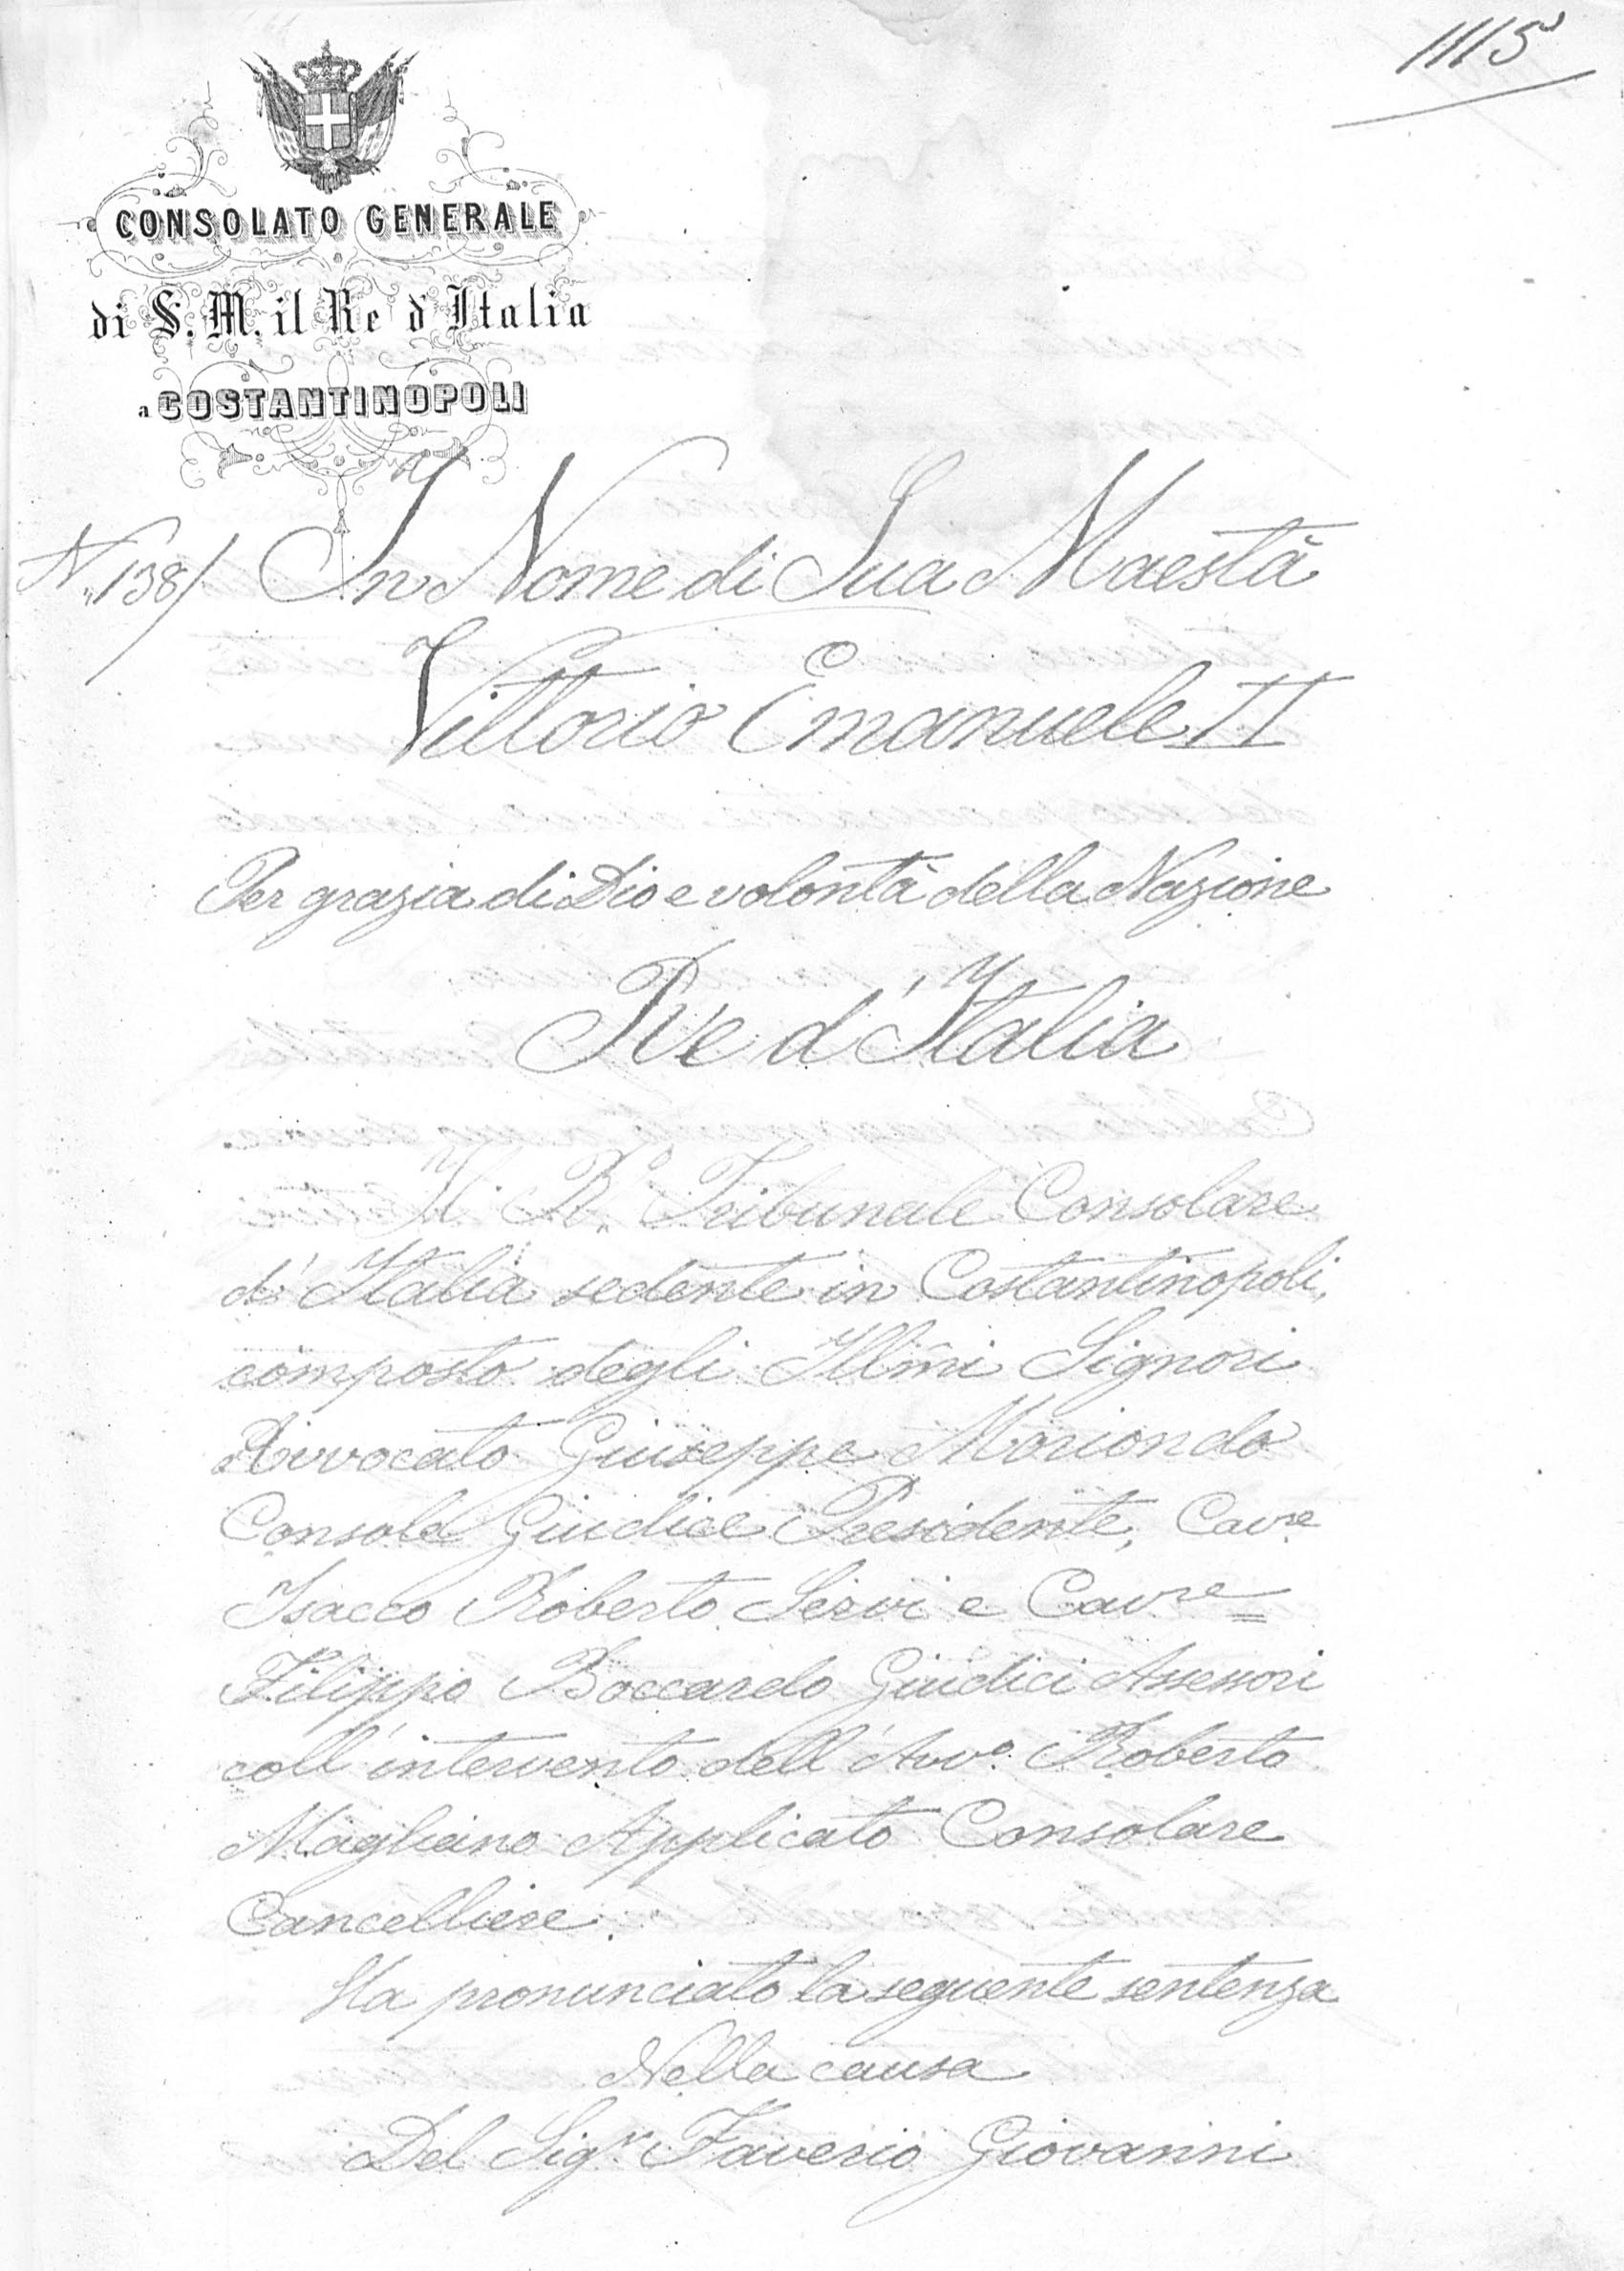 1115
CONSOLATO GENERALE
di S. M. il Re d'Italia
a COSTANTINOPOLI
N. 138/ In Nome di Sua Maestà
Vittorio Emanuele II
Per grazia di Dio e volontà della Nazione
Re d'Italia
Il R.º Tribunale Consolare
d'Italia sedente in Costantinopoli,
composto degli Illmi Signori
Avvocato Giuseppe Moriondo
Console Giudice Presidente, Cavre
Isacco Roberto Servi e Cavre
Filippo Boccardo Giudici Assessori
coll'intervento dell'Avvo. Roberto
Magliano Applicato Consolare
Cancelliere.
Ha pronunciato la seguente sentenza
Nella causa
Del Sigr. Faverio Giovanni